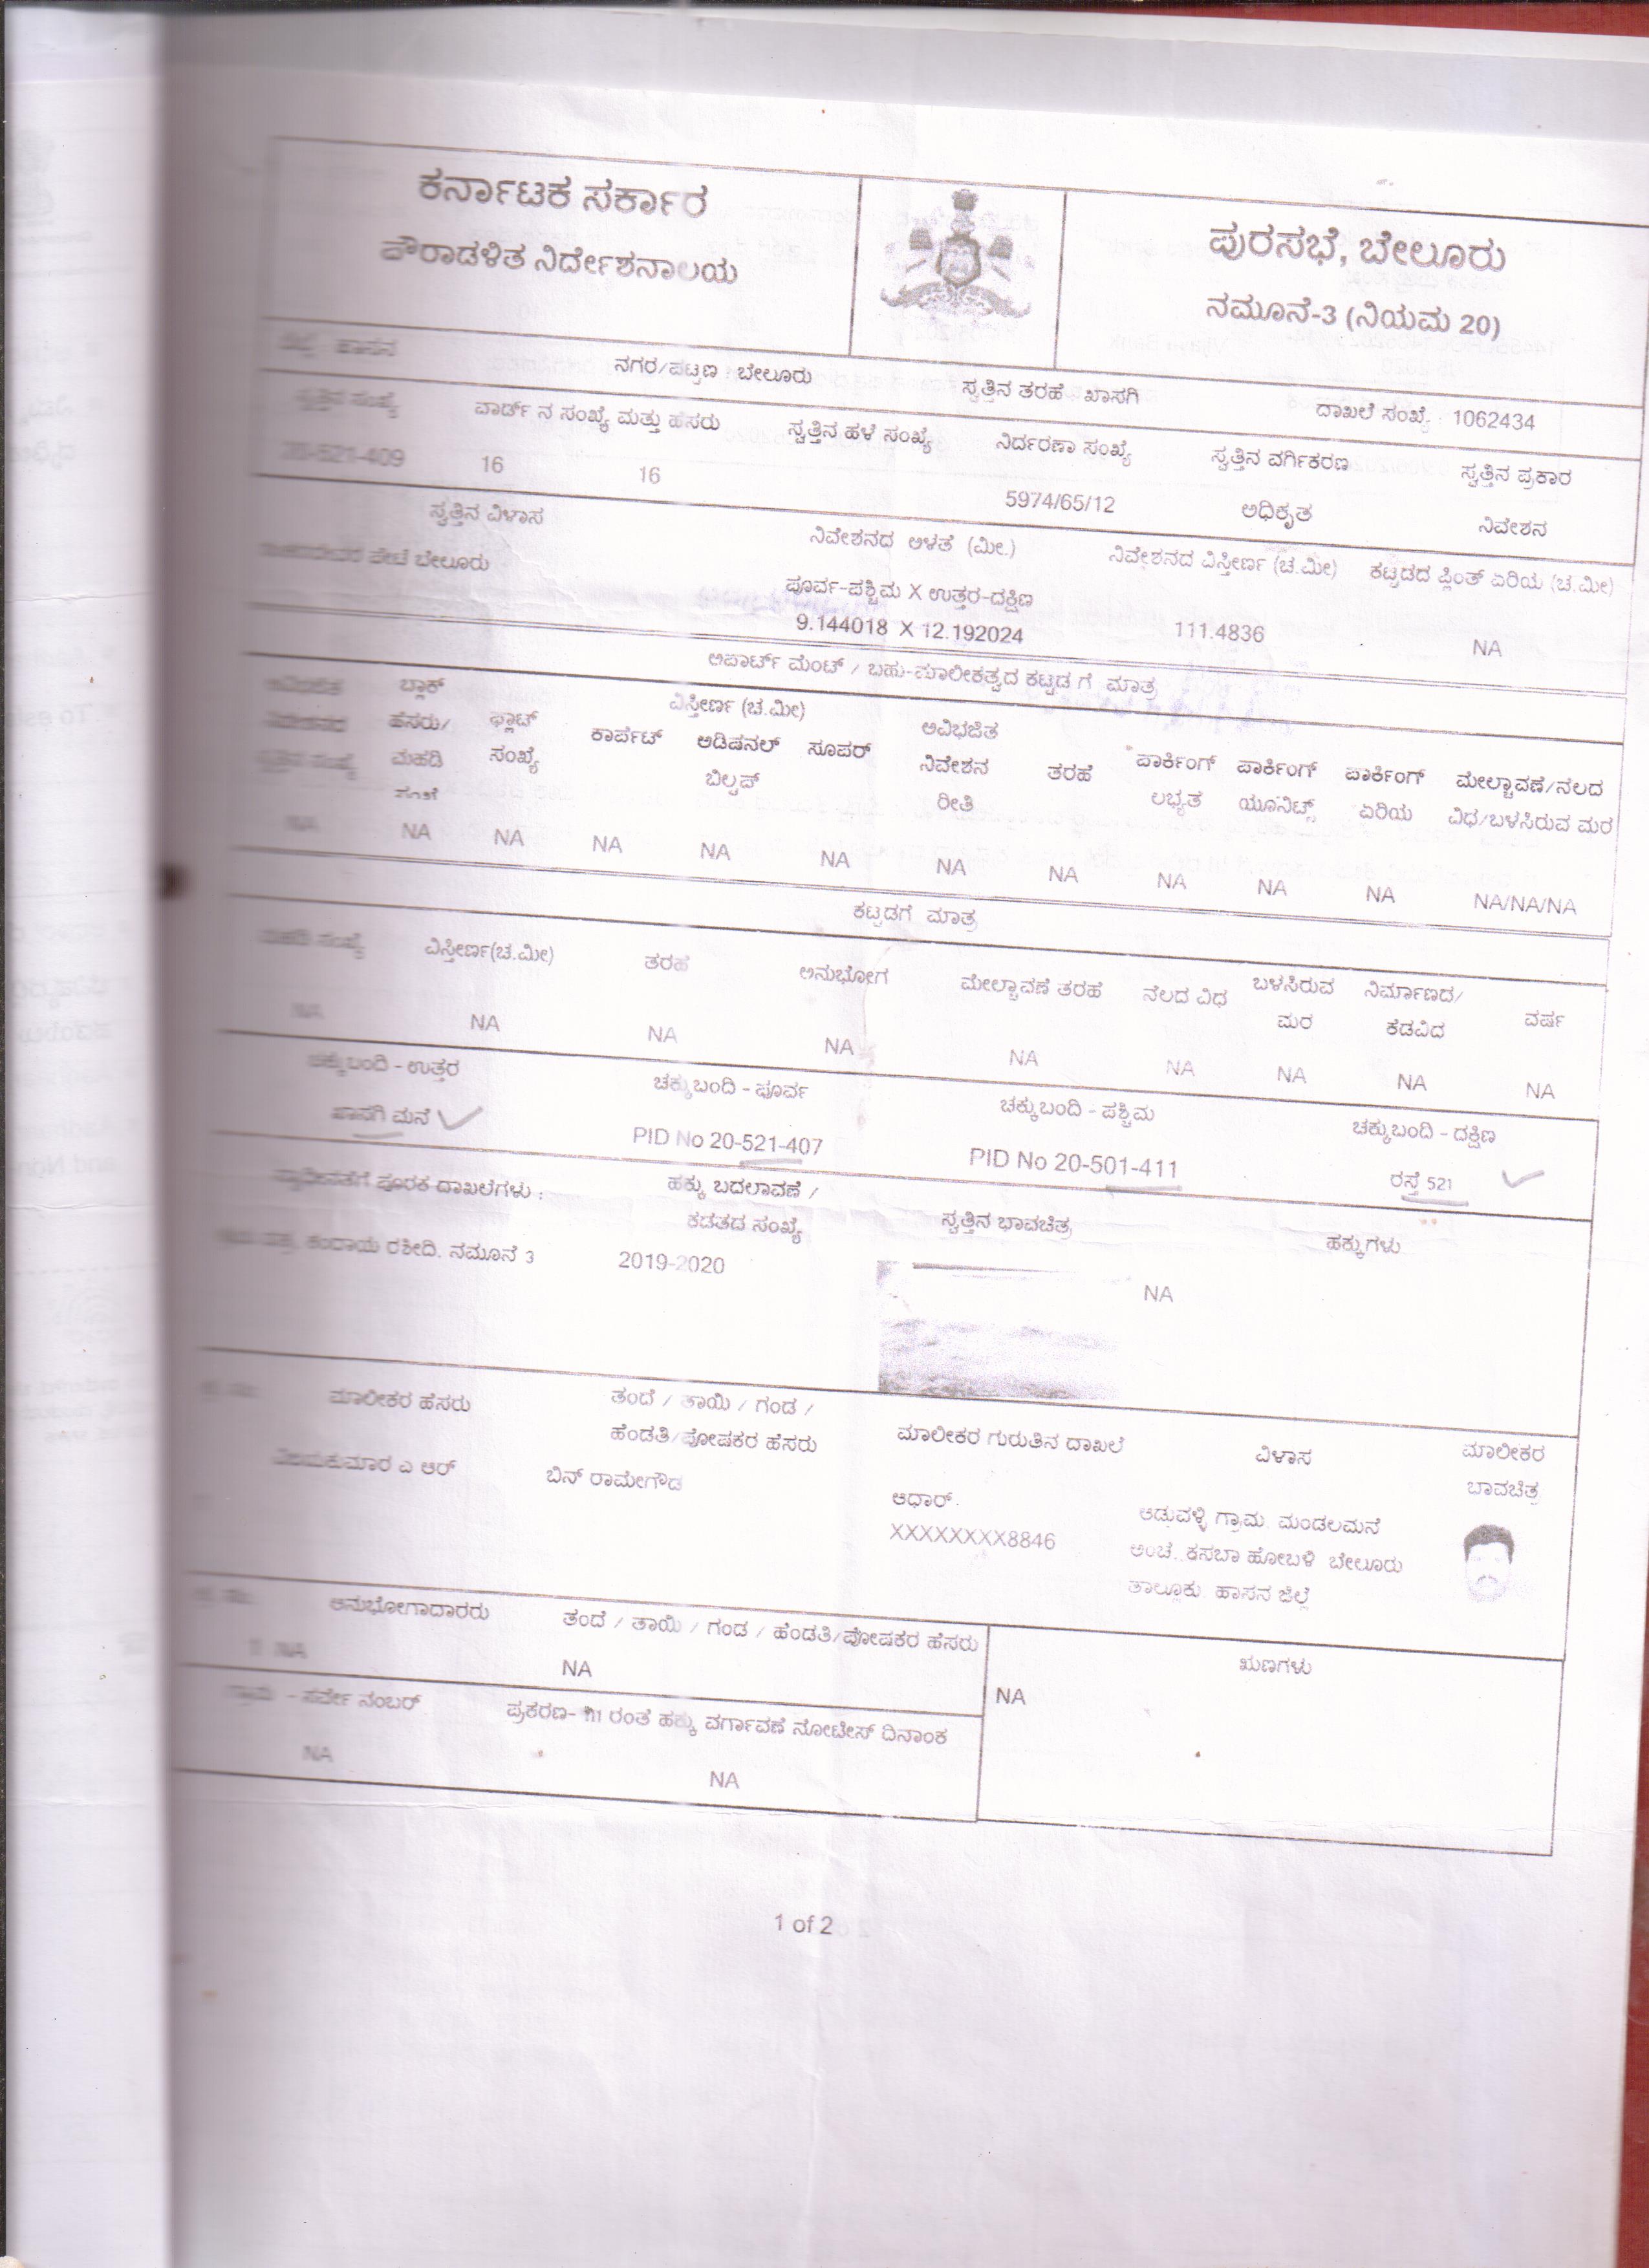 ಕರ್ನಾಟಕ ಸರ್ಕಾರ
ಪೌರಾಡಳಿತ ನಿರ್ದೇಶನಾಲಯ
ಪುರಸಭೆ, ಬೇಲೂರು
ನಮೂನೆ-3 (ನಿಯಮ 20)
ಹಾಸನ ನಗರ/ಪಟ್ಟಣ : ಬೇಲೂರು ಸ್ವತ್ತಿನ ತರಹೆ : ಖಾಸಗಿ ದಾಖಲೆ ಸಂಖ್ಯೆ : 1062434
ಸ್ವತ್ತಿನ ಸಂಖ್ಯೆ ವಾರ್ಡ್ ನ ಸಂಖ್ಯೆ ಮತ್ತು ಹೆಸರು ಸ್ವತ್ತಿನ ಹಳೆ ಸಂಖ್ಯೆ ನಿರ್ದರಣಾ ಸಂಖ್ಯೆ ಸ್ವತ್ತಿನ ವರ್ಗಿಕರಣ ಸ್ವತ್ತಿನ ಪ್ರಕಾರ
20-521-409 16 16 5974/65/12 ಅಧಿಕೃತ ನಿವೇಶನ
ಸ್ವತ್ತಿನ ವಿಳಾಸ ನಿವೇಶನದ ಅಳತೆ (ಮೀ.) ನಿವೇಶನದ ವಿಸ್ತೀರ್ಣ (ಚ.ಮೀ) ಕಟ್ಟಡದ ಪ್ಲಿಂತ್ ಏರಿಯ (ಚ.ಮೀ)
ಪೇಟೆ ಬೇಲೂರು ಪೂರ್ವ-ಪಶ್ಚಿಮ X ಉತ್ತರ-ದಕ್ಷಿಣ
9.144018 X 12.192024 111.4836 NA
ಅಪಾರ್ಟ್ ಮೆಂಟ್ / ಬಹು-ಮಾಲೀಕತ್ವದ ಕಟ್ಟಡ ಗೆ ಮಾತ್ರ
ಬ್ಲಾಕ್ ವಿಸ್ತೀರ್ಣ (ಚ.ಮೀ)
ಹೆಸರು/ ಫ್ಲಾಟ್ ಅವಿಭಜಿತ
ಮಹಡಿ ಸಂಖ್ಯೆ ಕಾರ್ಪೆಟ್ ಅಡಿಷನಲ್ ಸೂಪರ್ ನಿವೇಶನ ತರಹೆ ಪಾರ್ಕಿಂಗ್ ಪಾರ್ಕಿಂಗ್ ಪಾರ್ಕಿಂಗ್ ಮೇಲ್ಚಾವಣಿ/ನೆಲದ
ಬಿಲ್ಟಪ್ ರೀತಿ ಲಭ್ಯತೆ ಯೂನಿಟ್ಸ್ ಏರಿಯ ವಿಧ/ಬಳಸಿರುವ ಮರ
NA NA NA NA NA NA NA NA NA NA NA NA/NA/NA
ಕಟ್ಟಡಗೆ ಮಾತ್ರ
ಮಹಡಿ ಸಂಖ್ಯೆ ವಿಸ್ತೀರ್ಣ(ಚ.ಮೀ) ತರಹೆ ಅನುಭೋಗ ಮೇಲ್ಚಾವಣೆ ತರಹೆ ನೆಲದ ವಿಧ ಬಳಸಿರುವ ನಿರ್ಮಾಣದ/
ಮರ ಕೆಡವಿದ ವರ್ಷ
NA NA NA NA NA NA NA NA NA
ಚಕ್ಕುಬಂದಿ - ಉತ್ತರ ಚಕ್ಕುಬಂದಿ - ಪೂರ್ವ ಚಕ್ಕುಬಂದಿ - ಪಶ್ಚಿಮ ಚಕ್ಕುಬಂದಿ - ದಕ್ಷಿಣ
ಖಾಸಗಿ ಮನೆ PID No 20-521-407 PID No 20-501-411 ರಸ್ತೆ 521
ಪೂರಕ ದಾಖಲೆಗಳು : ಹಕ್ಕು ಬದಲಾವಣೆ /
ಕಡತದ ಸಂಖ್ಯೆ ಸ್ವತ್ತಿನ ಭಾವಚಿತ್ರ ಹಕ್ಕುಗಳು
ಕಂದಾಯ ರಶೀದಿ. ನಮೂನೆ 3 2019-2020 NA
ಮಾಲೀಕರ ಹೆಸರು ತಂದೆ / ತಾಯಿ / ಗಂಡ /
ಹೆಂಡತಿ/ಪೋಷಕರ ಹೆಸರು ಮಾಲೀಕರ ಗುರುತಿನ ದಾಖಲೆ ವಿಳಾಸ ಮಾಲೀಕರ
ಬಾವಚಿತ್ರ
ವಿಜಯಕುಮಾರ ಎ ಆರ್ ಬಿನ್ ರಾಮೇಗೌಡ ಆಧಾರ್.
XXXXXXXX8846
ಆಡುವಳ್ಳಿ ಗ್ರಾಮ, ಮಂಡಲಮನೆ
ಅಂಚೆ, ಕಸಬಾ ಹೋಬಳಿ ಬೇಲೂರು
ತಾಲ್ಲೂಕು, ಹಾಸನ ಜಿಲ್ಲೆ
ಅನುಭೋಗಾದಾರರು ತಂದೆ / ತಾಯಿ / ಗಂಡ / ಹೆಂಡತಿ/ಪೋಷಕರ ಹೆಸರು ಋಣಗಳು
NA NA NA
ಗ್ರಾಮ - ಸರ್ವೇ ನಂಬರ್ ಪ್ರಕರಣ- ರಂತೆ ಹಕ್ಕು ವರ್ಗಾವಣೆ ನೋಟೀಸ್ ದಿನಾಂಕ
NA NA
1 of 2